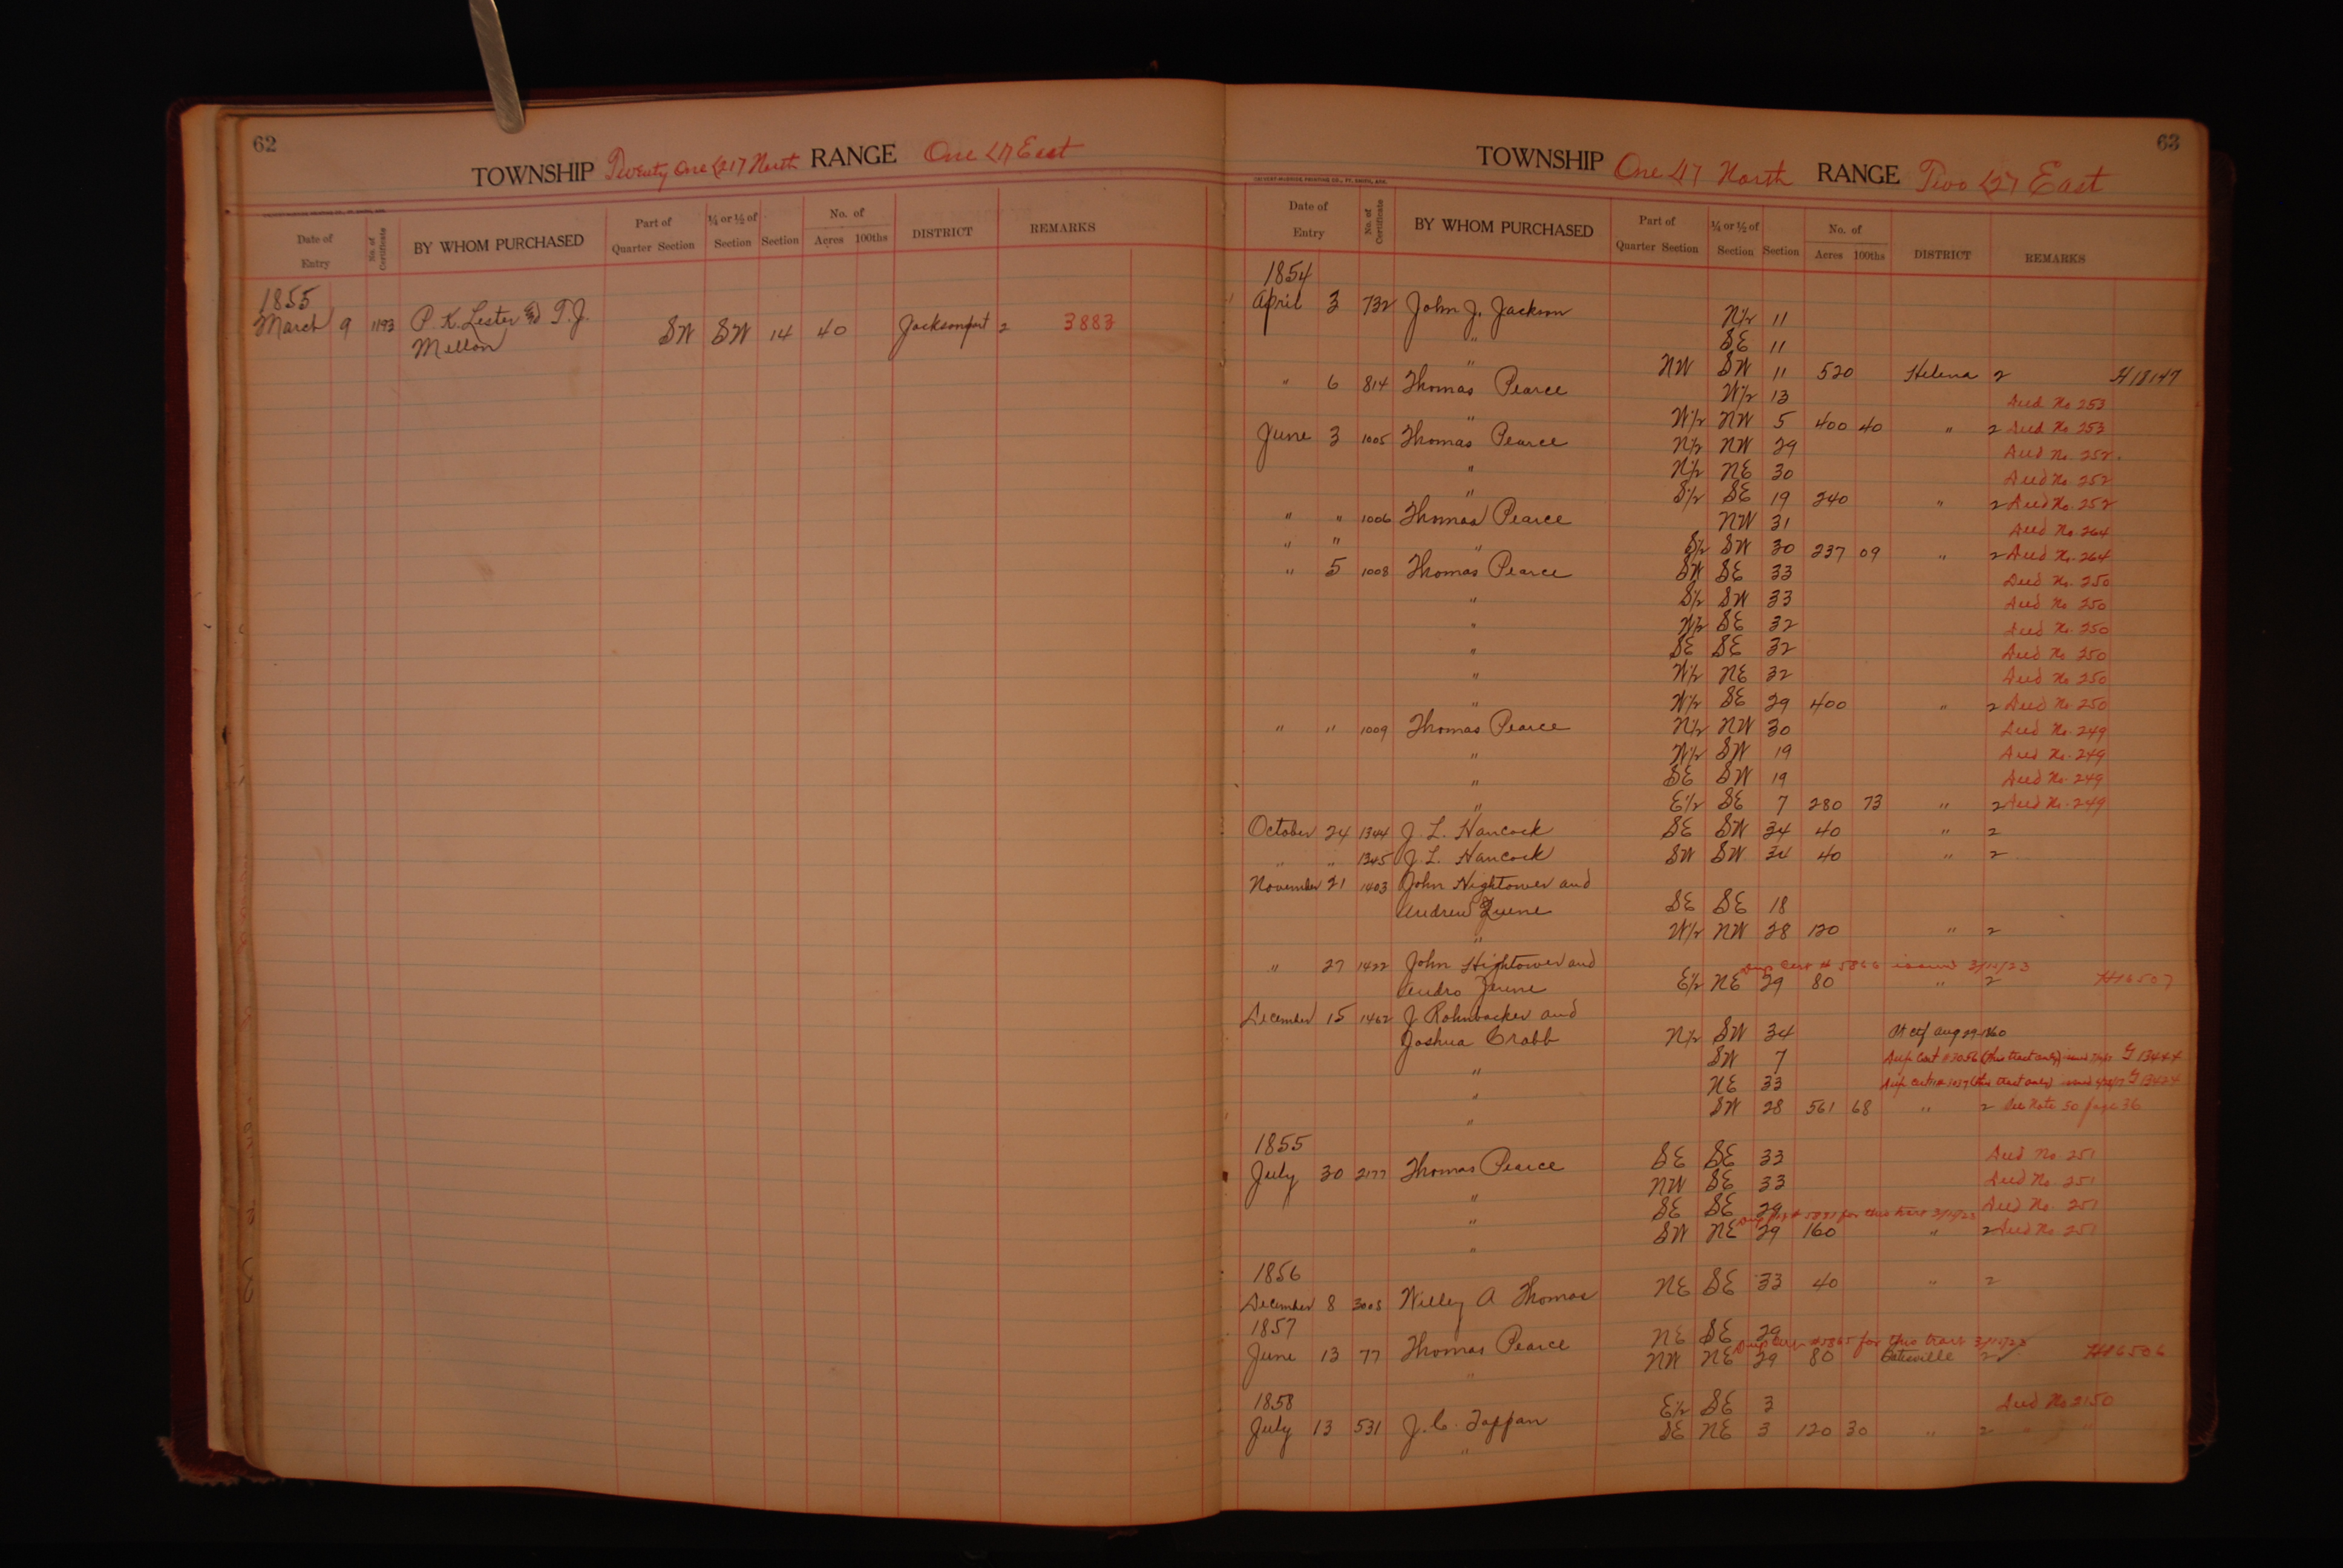 62
TOWNSHIP Twenty One (21) North RANGE One (1) East
Date of Entry | No. of Certificate | BY WHOM PURCHASED | Part of Quarter Section | ¼ or ½ of Section | Section | No. of Acres 100ths | DISTRICT | REMARKS
1855
March 9 1193 P. K. Lester and T. J.
Mellon SW SW 14 40 Jacksonport 2 3883
63
TOWNSHIP One (1) North RANGE Two (2) East
CALVERT-McBRIDE PRINTING CO., FT. SMITH, ARK.
Date of Entry | No. of Certificate | BY WHOM PURCHASED | Part of Quarter Section | ¼ or ½ of Section | Section | No. of Acres 100ths | DISTRICT | REMARKS
1854
April 3 732 John J. Jackson N½ 11
" SE 11
" NW SW 11 520 Helena 2 H 18147
" 6 814 Thomas Pearce W½ 13 Deed No 253
" W½ NW 5 400 40 " 2 Deed No 253
June 3 1005 Thomas Pearce N½ NW 29 Deed No. 252.
" N½ NE 30 Deed No 252
" S½ SE 19 240 " 2 Deed No. 252
" " 1006 Thomas Pearce NW 31 Deed No. 264
" " " S½ SW 30 237 09 " 2 Deed No. 264
" 5 1008 Thomas Pearce SW SE 33 Deed No. 250
" S½ SW 33 Deed No 250
" W½ SE 32 Deed No. 250
" SE SE 32 Deed No 250
" W½ NE 32 Deed No 250
" W½ SE 29 400 " 2 Deed No 250
" " 1009 Thomas Pearce N½ NW 30 Deed No. 249
" W½ SW 19 Deed No. 249
" SE SW 19 Deed No. 249
" E½ SE 7 280 73 " 2 Deed No. 249
October 24 1344 J. L. Hancock SE SW 34 40 " 2
" " 1345 J. L. Hancock SW SW 34 40 " 2
November 21 1403 John Hightower and
Andrew SE SE 18
" W½ NW 28 120 " 2
" 27 1422 John Hightower and
Dup Cert # 5866 issued 3/12/23
Andro E½ NE 29 80 " 2 H16507
December 15 1462 J Rohnbacker and
Joshua Crabb N½ SW 34 Pt cf Aug 29-1860
" SW 7 Dup Cert # 3056 (this tract only) issued G 13444
" NE 33 Dup Cert # (this tract only) issued G 13424
" SW 28 561 68 " 2 See Note 50 page 36
1855
July 30 2177 Thomas Pearce SE SE 33 Deed No 251
" NW SE 33 Deed No. 251
" SE SE 29 Deed No. 251
Dup Cert # for this tract 3/12/23
" SW NE 29 160 " 2 Deed No 251
1856
December 8 3008 Willey A Thomas NE SE 33 40 " 2
1857
June 13 77 Thomas Pearce NE SE 29
Dup Cert #5865 for this tract 3/12/23
" NW NE 29 80 Batesville 2 H16506
1858
July 13 531 J. C. Tappan E½ SE 3 Deed No 2150
" SE NE 3 120 30 " 2 "